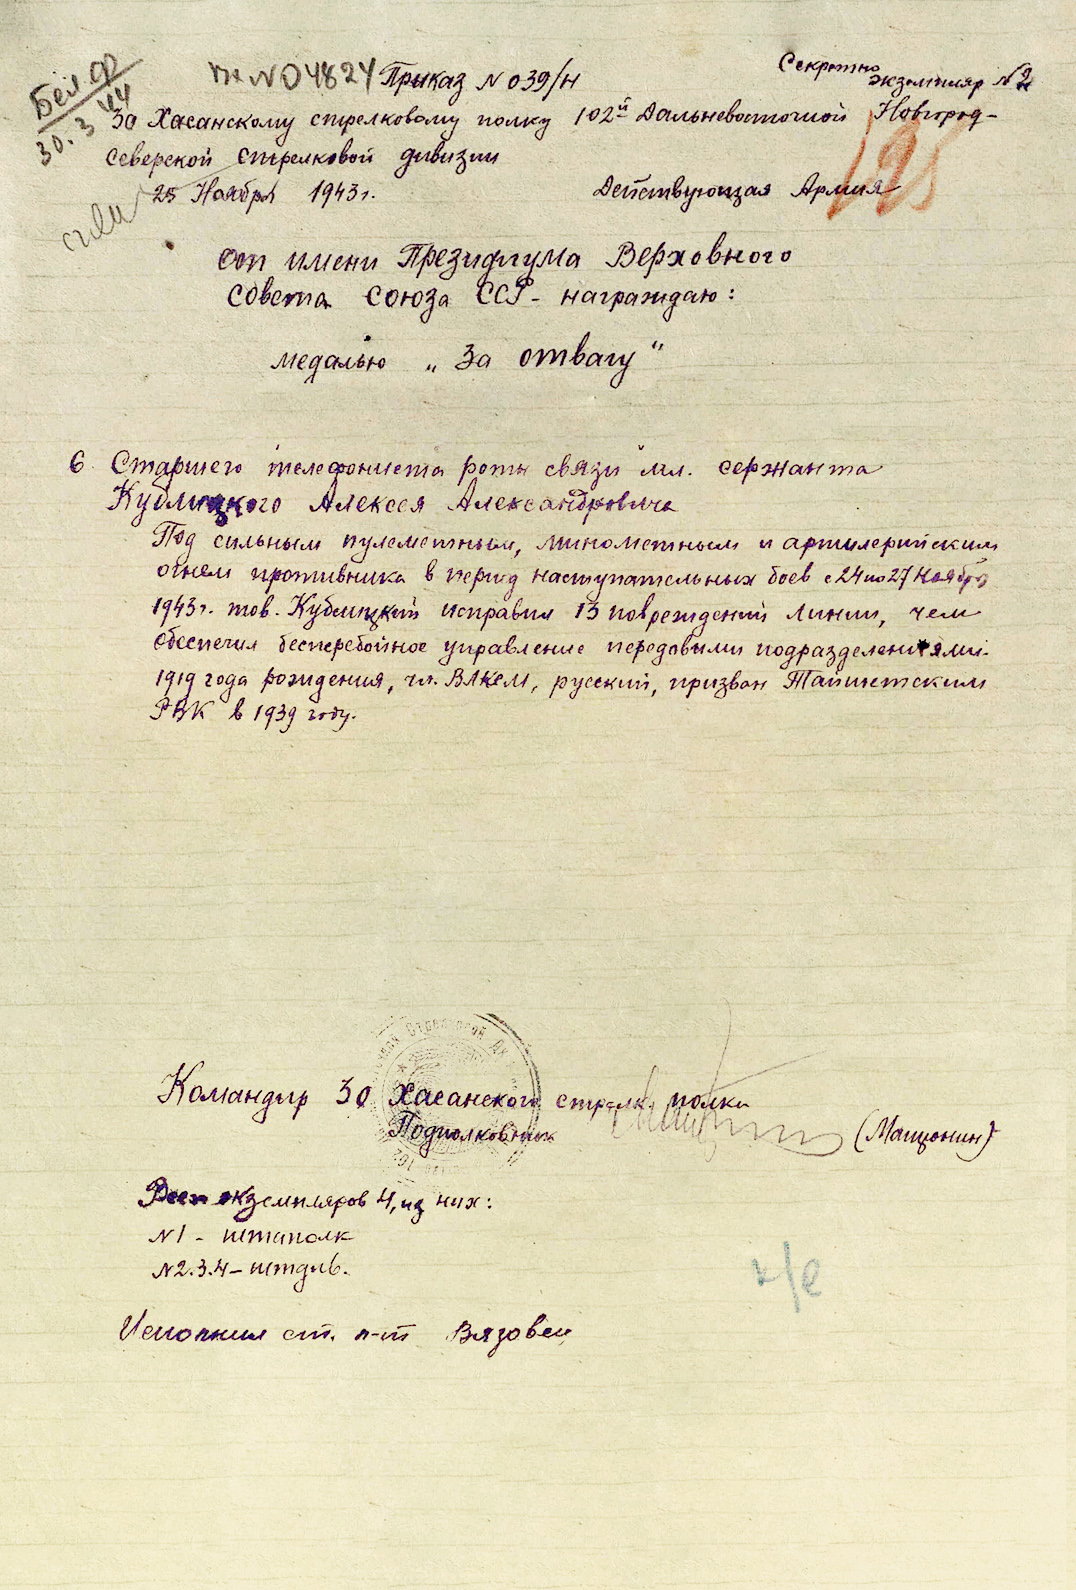 Бел ф
30.3.44
вх N 04824 Приказ N 039/н
Секретно
экземпляр N 2
30 Хасанскому стрелковому полку 102й Дальневосточной Новгород-
северской стрелковой дивизии
25 Ноября 1943г. Действующая Армия
От имени Президиума Верховного
Совета Союза ССР - награждаю:
медалью „За отвагу“
6 Старшего телефониста роты связи мл. сержанта
Кублицкого Алексея Александровича
Под сильным пулеметным, минометным и артилерийским
огнем противника в период наступательных боев с 24 по 27 Ноября
1943г. тов. Кублицкий исправил 13 повреждений линии, чем
обеспечил бесперебойное управление передовыми подразделениями.
1919 года рождения, чл. ВЛКСМ, русский, призван Тайшетским
РВК в 1939 году.
Командир 30 Хасанского стрелк. полка
Подполковник (Мащонин)
Всего экземпляров 4, из них:
N1 - штаполк
N2.3.4 - штдив.
Исполнил ст. л-т Вязовец